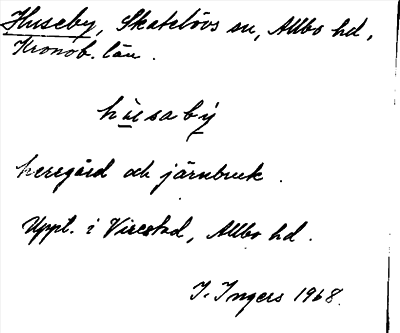 Huseby, Skatelövs sn, Allbo hd,
Kronob. län.
hùsabý
herrgård och järnbruk.
Uppt. i Virestad, Allbo hd.
I. Ingers 1968.